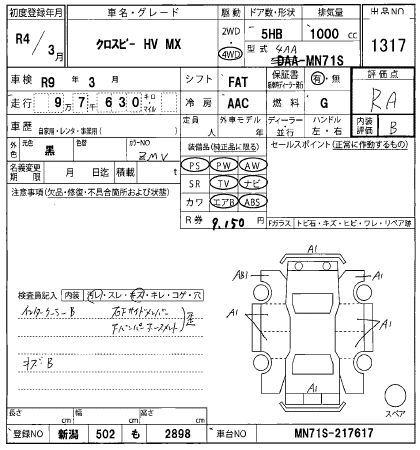 初度登録年月 車名・グレード 駆動 ドア数・形状 排気量 出品NO
R4/3月 クロスビー HV MX 2WD・4WD 5HB 1000cc 1317
型式 4AA DAA-MN71S
車検 R9年3月 シフト FAT 保証書 有・無 評価点
走行 9万7千630 キロ・マイル 冷房 AAC 燃料 G RA
車歴 自家用・レンタ・事業用( ) 定員 人 外車モデル 年 ディーラー・並行 ハンドル 左・右 内装評価 B
外色 元色 黒 色替 カラーNO ZMV 装備品(純正品に限る) セールスポイント(正常に作動するもの)
名義変更期限 月 日迄 積載 t PS PW AW
注意事項(欠品・修復・不具合箇所および状態) SR TV ナビ
カワ エアB ABS
R券 9,150円 Fガラス トビ石・キズ・ヒビ・ワレ・リペア跡
A1
AB1 A1
検査員記入 内装 汚レ・スレ・キズ・キレ・コゲ・穴
インタークーラーB 右Fサイドメンバー 歪
A1 A1
キズB
A1
スペア
長さ cm 幅 cm 高さ cm
登録NO 新潟 502 も 2898 車台NO MN71S-217617